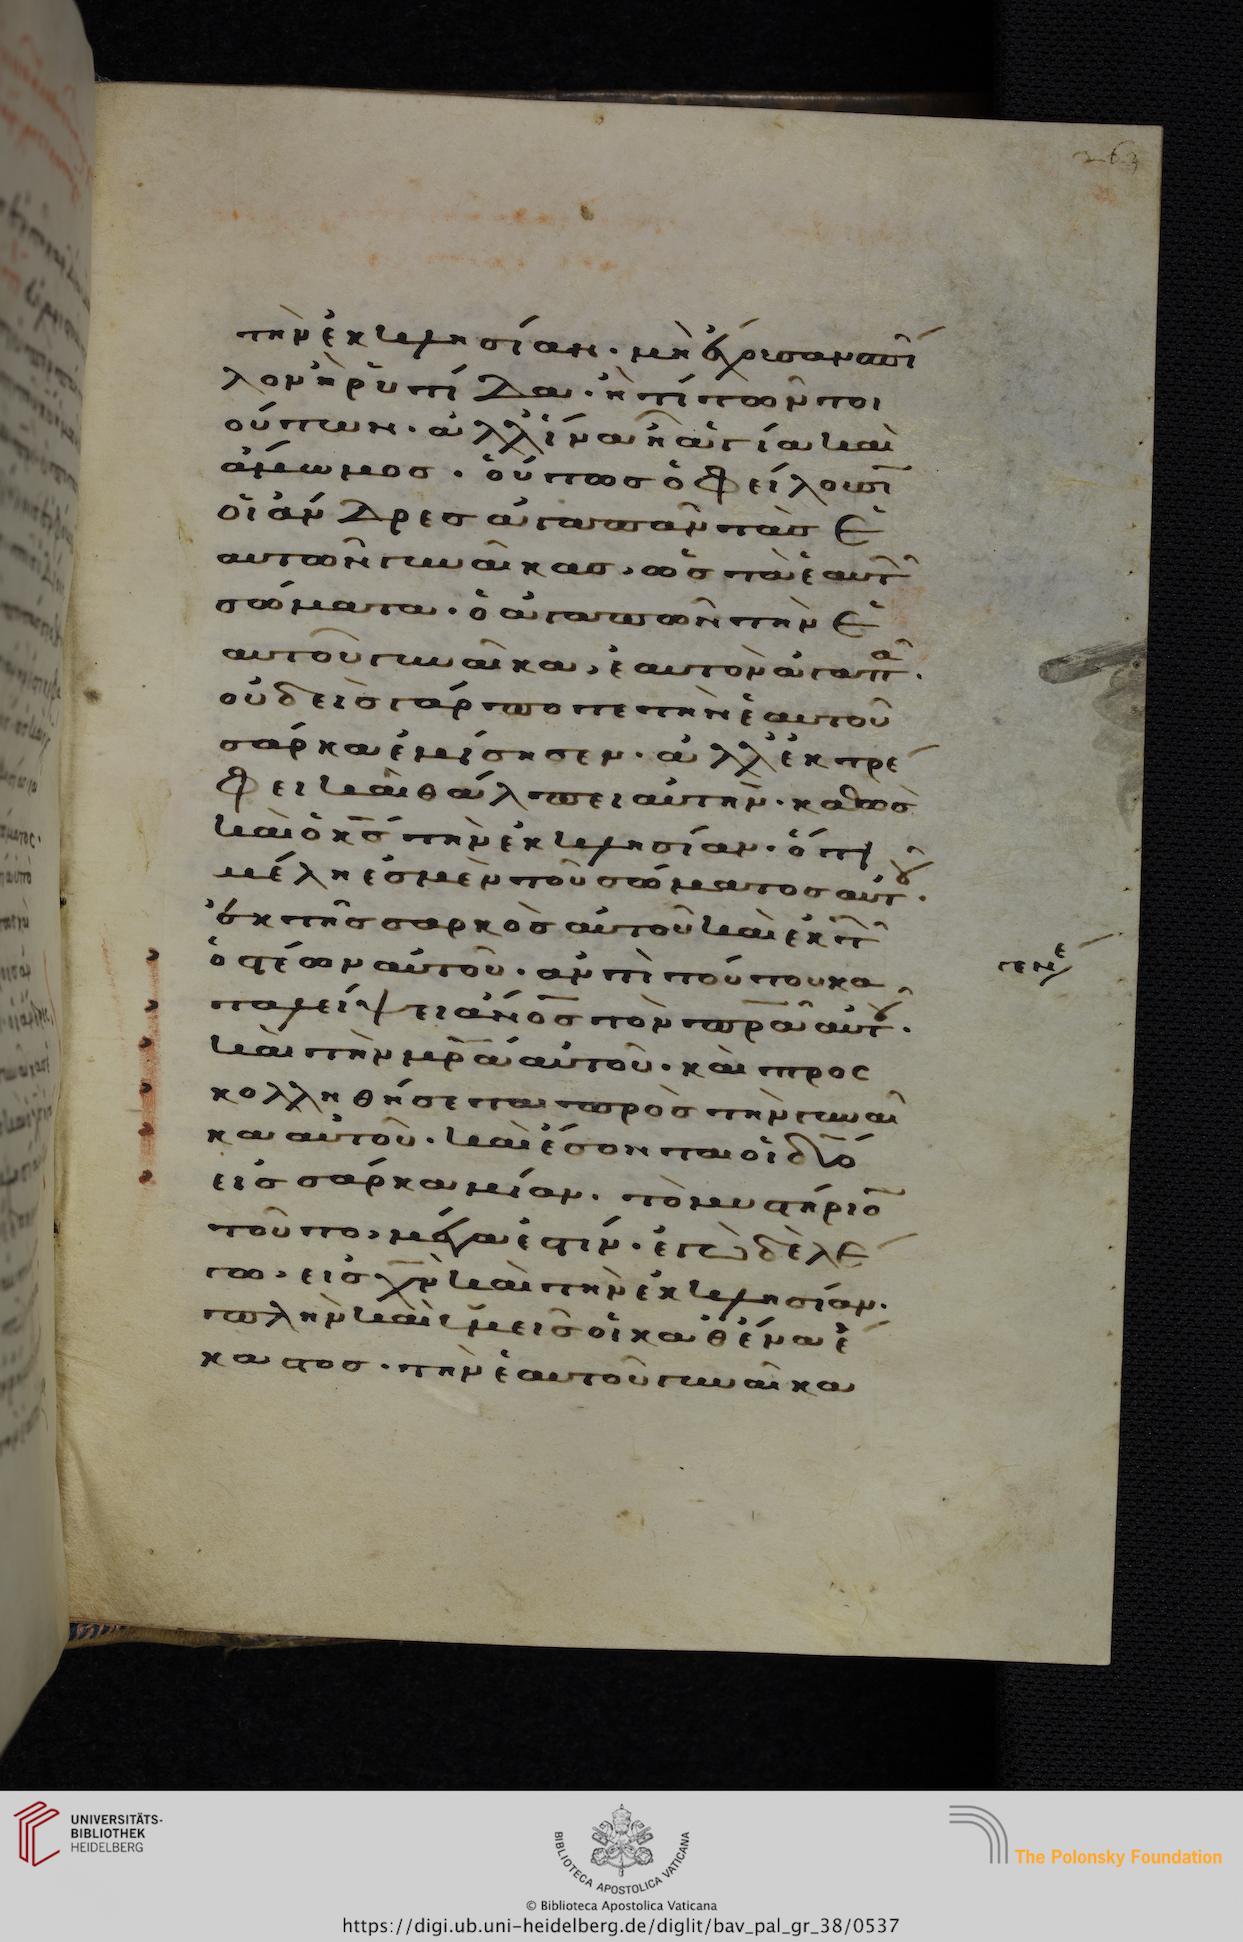 263
τὴν ἐκκλησίαν· μὴ ἔχουσαν σπῖ
λον ἢ ῥυτίδα· ἤ τι τῶν τοι
ούτων· ἀλλ' ἵνα ἦ ἁγία καὶ
ἄμωμος· οὕτως ὀφείλουσι
οἱ ἄνδρες ἀγαπᾶν τὰς ἑ
αυτῶν γυναῖκας, ὡς τὰ ἑαυτ
σώματα· ὁ ἀγαπῶν τὴν ἑ
αυτοῦ γυναῖκα, ἑαυτὸν ἀγαπᾶ·
οὐδεὶς γάρ ποτε τὴν ἑαυτοῦ
σάρκα ἐμίσησεν· ἀλλ' ἐκτρέ
φει καὶ θάλπει αὐτήν· καθὼς
καὶ ὁ κς τὴν ἐκκλησίαν· ὅτι
μέλη ἐσμὲν τοῦ σώματος αὐτοῦ·
ἐκ τῆς σαρκὸς αὐτοῦ καὶ ἐκ τ
ὀστέων αὐτοῦ· ἀντὶ τούτου κα
γενε
ταλείψει ἀνος τὸν πρα αὐτοῦ·
καὶ τὴν μρα αὐτοῦ· καὶ προς
κολληθήσεται πρὸς τὴν γυναῖ
κα αὐτοῦ· καὶ ἔσονται οἱ δύο
εἰς σάρκα μίαν· τὸ μυστήριο
τοῦτο, μέγα ἐστίν· ἐγὼ δὲ λέ
γω, εἰς χν καὶ τὴν ἐκκλησίαν·
πλὴν καὶ ὑμεῖς οἱ καθ' ἕνα ἕ
καστος· τὴν ἑαυτοῦ γυναῖκα
UNIVERSITÄTS-
BIBLIOTHEK
HEIDELBERG
BIBLIOTECA APOSTOLICA VATICANA
The Polonsky Foundation
© Biblioteca Apostolica Vaticana
https://digi.ub.uni-heidelberg.de/diglit/bav_pal_gr_38/0537